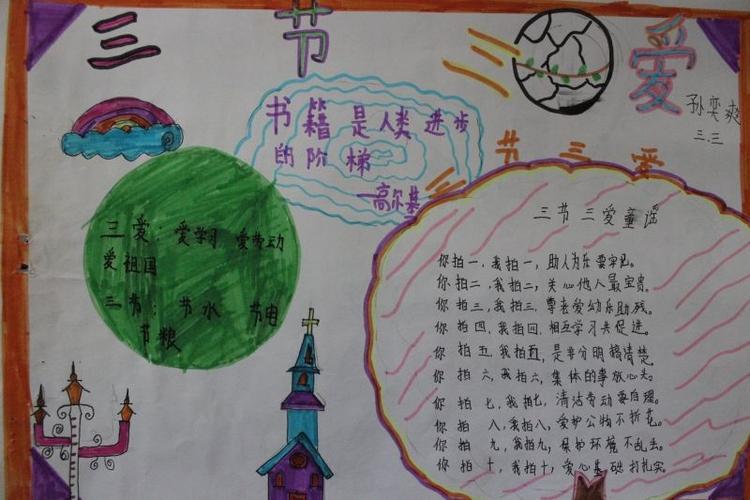 三节
三爱
孙奕爽
三.三
书籍是人类进步
的阶梯
—高尔基
节三爱
三爱：爱学习 爱劳动
爱祖国
三节：节水 节电
节粮
三节三爱童谣
你拍一，我拍一，助人为乐要牢记。
你拍二，我拍二，关心他人最宝贵。
你拍三，我拍三，尊老爱幼乐助残。
你拍四，我拍四，相互学习共促进。
你拍五，我拍五，是非分明搞清楚
你拍六，我拍六，集体的事放心头。
你拍七，我拍七，清洁劳动要自理。
你拍八，我拍八，爱护公物不折花。
你拍九，我拍九，保护环境不乱丢。
你拍十，我拍十，爱心基础打扎实。